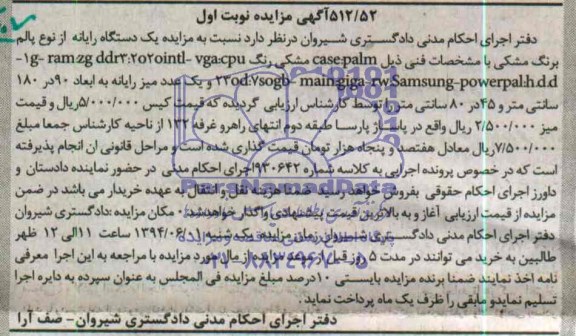 ۵۱۲/۵۲آگهی مزایده نوبت اول
دفتر اجرای احکام مدنی دادگستری شیروان درنظر دارد نسبت به مزایده یک دستگاه رایانه از نوع پالم
برنگ مشکی با مشخصات فنی ذیل case:palm مشکی رنگ g- ram:zg ddr۳:۲۰۲۰intl- vga:cpu-۱
h.d.d:۲۲od:۷sogb- main:giga-rw:Samsung-power:pal و یک عدد میز رایانه به ابعاد ۹۰در ۱۸۰
سانتی متر و ۴۵در ۸۰ سانتی متر را توسط کارشناس ارزیابی گردیده که قیمت کیس ۵/۰۰۰/۰۰۰ریال و قیمت
میز ۲/۵۰۰/۰۰۰ ریال واقع در پاساژ پارسا طبقه دوم انتهای راهرو غرفه ۱۳۲ از ناحیه کارشناس جمعا مبلغ
۷/۵۰۰/۰۰۰ریال معادل هفتصد و پنجاه هزار تومان قیمت گذاری شده است و مراحل قانونی ان انجام پذیرفته
است که در خصوص پرونده اجرایی به کلاسه شماره ۹۳۰۶۴۲اجرای احکام مدنی در حضور نماینده دادستان و
داورز اجرای احکام حقوقی بفروش خواهد رسید ضمنا هزینه نقل و انتقال به عهده خریدار می باشد در ضمن
مزایده از قیمت ارزیابی آغاز و به بالاترین قیمت پیشنهادی واگذار خواهد شد. مکان مزایده :دادگستری شیروان
دفتر اجرای احکام مدنی دادگستری شیروان زمان مزایده یک شنبه ۱۳۹۴/۰۶/۰۱ ساعت ۱۱الی ۱۲ ظهر
طالبین به خرید می توانند در مدت ۵ روز قبل از موعد مزایده از مال مورد مزایده با مراجعه به این اجرا معرفی
نامه اخذ نمایند ضمنا برنده مزایده بایستی ۱۰درصد مبلغ مزایده فی المجلس به عنوان سپرده به دایره اجرا
تسلیم نمایدو مابقی را ظرف یک ماه پرداخت نماید.
دفتر اجرای احکام مدنی دادگستری شیروان- صف آرا